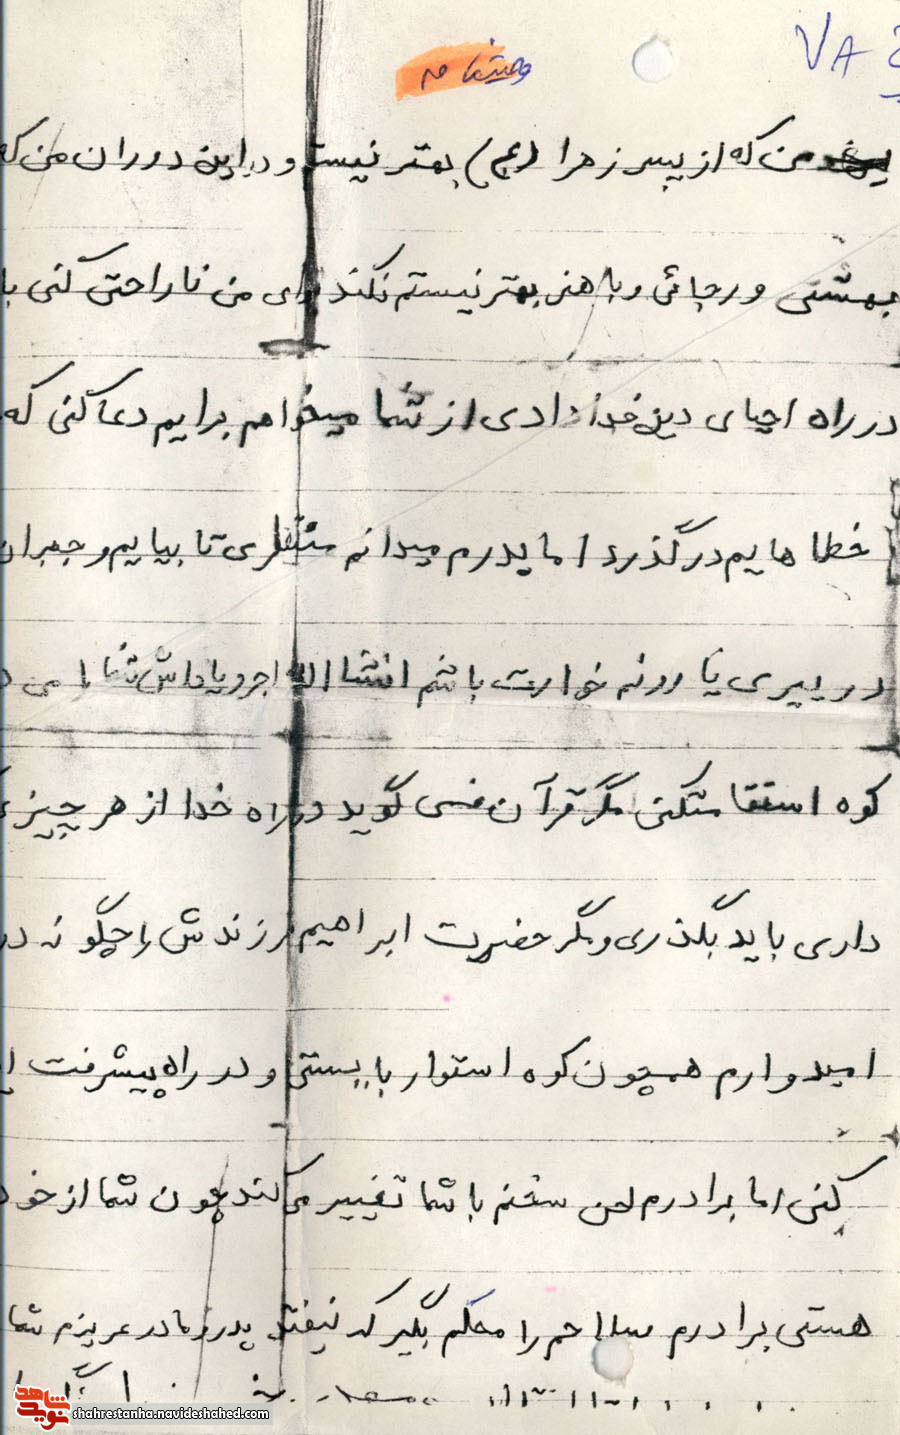 ۷۸
وصیتنامه
من که از پسر زهرا (عج) بهتر نیست و در این دوران من که
بهشتی و رجائی و باهنر بهتر نیستم نکند برای من ناراحتی کنی
در راه احیای دین خدا دادی از شما میخواهم برایم دعا کنی که
خطا هایم درگذرد اما پدرم میدانم منتظری تا بیایم و جبران
در پیری نا رونه خوارت باشم انشا الله اجر و پاداش شما را می
کوه استقامتکنی مگر قرآن نمی گوید در راه خدا از هر چیز
داری باید بگذری و مگر حضرت ابراهیم فرزندش را چگونه
امیدوارم همچون کوه استوار باییستی و در راه پیشرفت
کنی اما برادرم لحن سخنم با شما تغییر می کند چون شما از
هستی برادرم سلاحم را محکم بگیر که نیفتد پدر و مادر عزیزم شما
نوید شاهد
shahrestanha.navideshahed.com